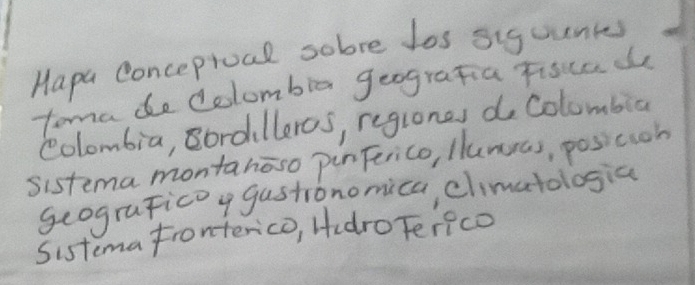 Mapa Conceptual sobre los siguientes
tema de Colombia geografia Fisica de
Colombia, Cordilleras, regiones de Colombia
sistema montañoso periferico, llanuras, posicion
geografico y gastronomica, climatologia
Sistema Fronterico, HidroFerico